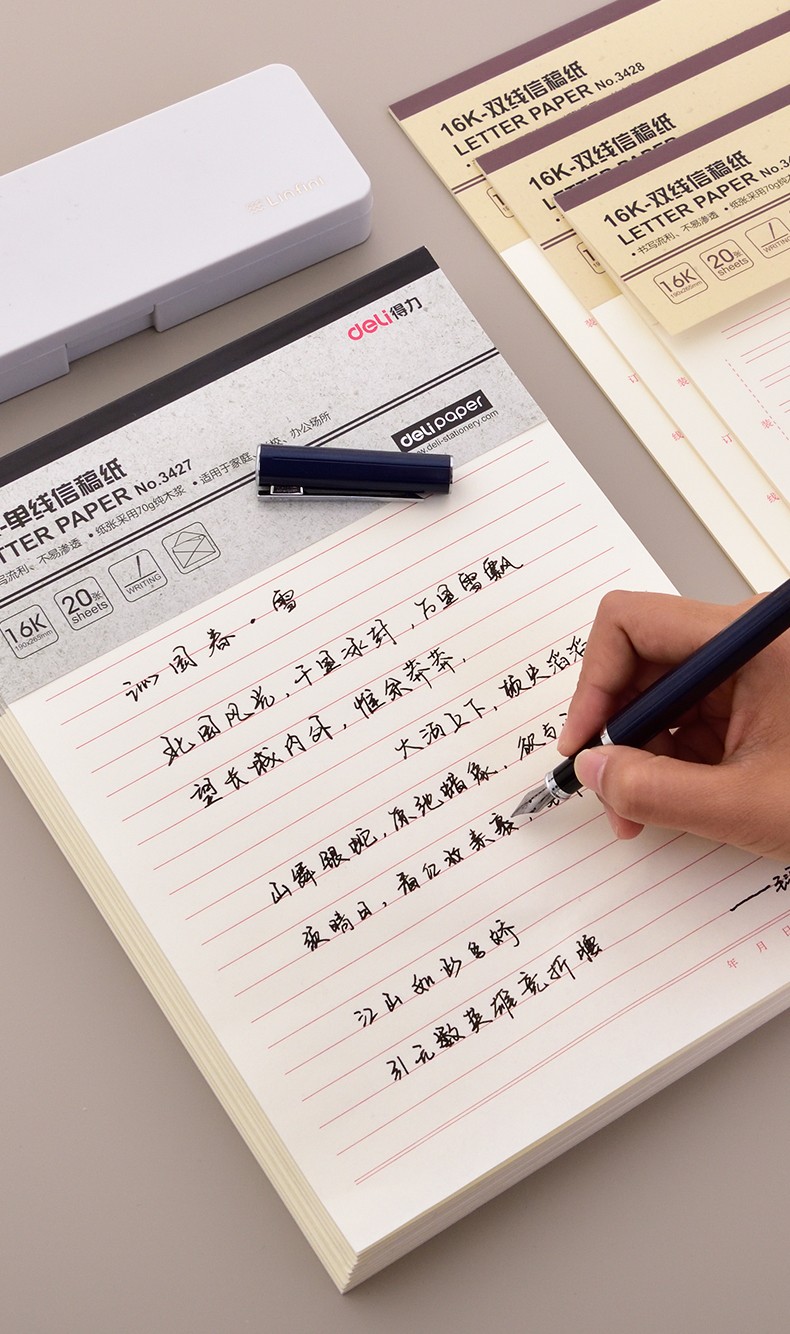 16K-双线信稿纸
LETTER PAPER No.3428
16K-双线信稿纸
LETTER PAPER
16K-双线信稿纸
LETTER PAPER No.34
• 书写流利、不易渗透 • 纸张采用70g纯木
16K
190x265mm
20张
sheets
WRITING
装
订
线
装
订
线
装
线
deli得力
deli paper
w.deli-stationery.com
单线信稿纸
TTER PAPER No.3427
写流利、不易渗透 • 纸张采用70g纯木浆 • 适用于家庭、校、办公场所
16K
190x265mm
20张
sheets
WRITING
沁园春·雪
北国风光，千里冰封，万里雪飘
望长城内外，惟余莽莽，
大河上下，顿失滔滔
山舞银蛇，原驰蜡象，欲与
须晴日，看红妆素裹
江山如此多娇
引无数英雄竞折腰
年 月 日